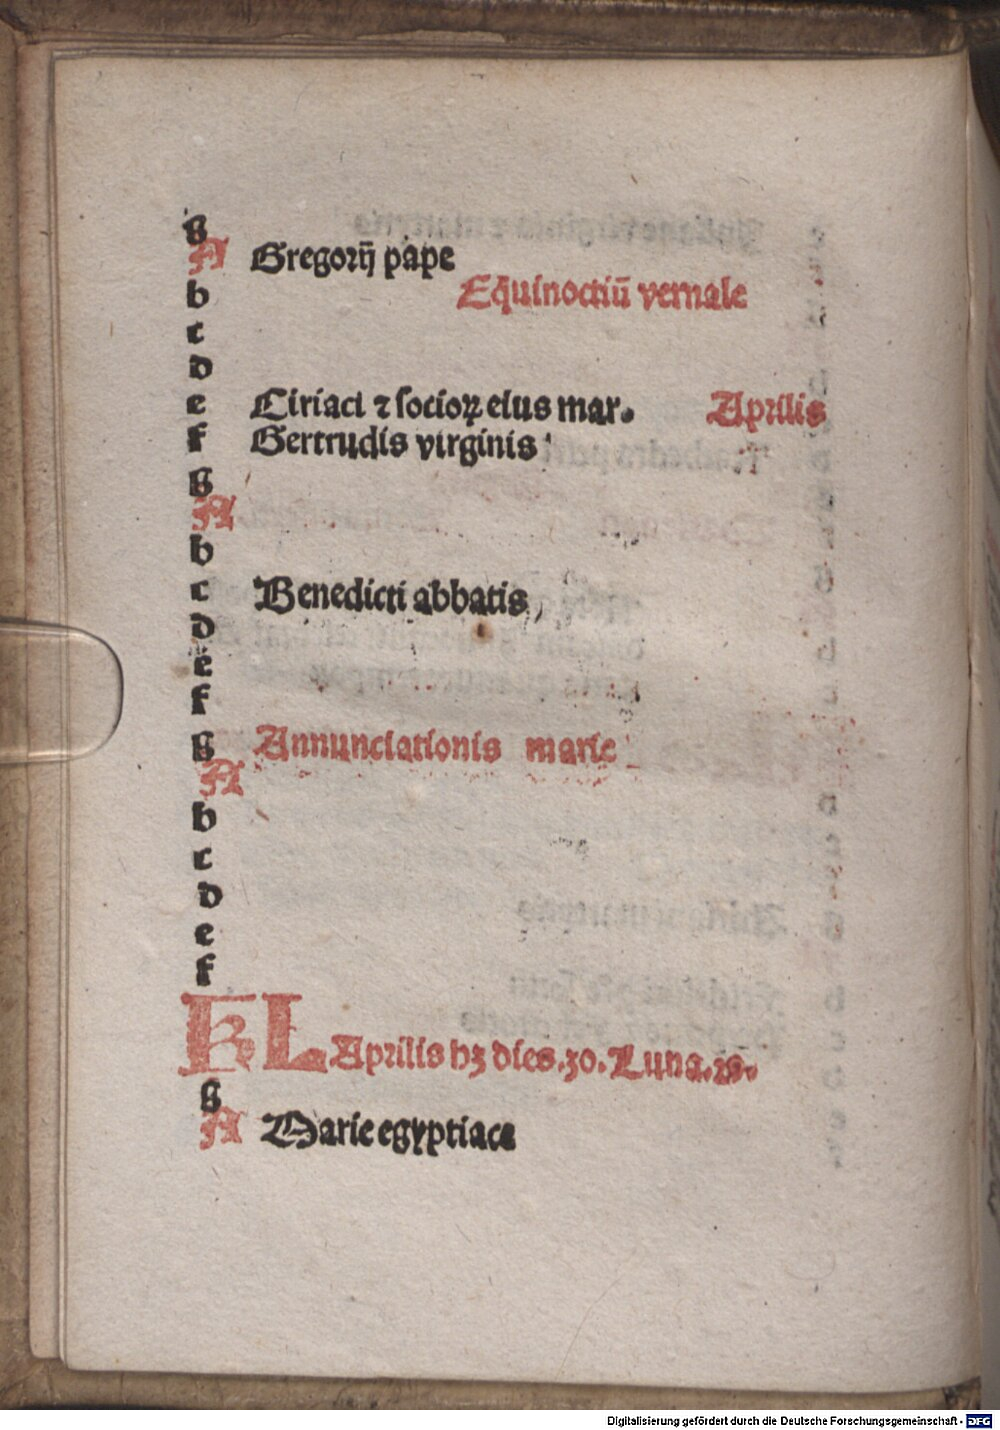 g
A Gregorij pape
b Equinoctiū vernale
c
d
e Ciriaci ⁊ socioꝝ eius mar. Aprilis
f Gertrudis virginis
g
A
b
c Benedicti abbatis
d
e
f
g Annunciationis marie
A
b
c
d
e
f
KL Aprilis hꝫ dies.30.Luna.29.
g
A Marie egyptiace
Digitalisierung gefördert durch die Deutsche Forschungsgemeinschaft - DFG